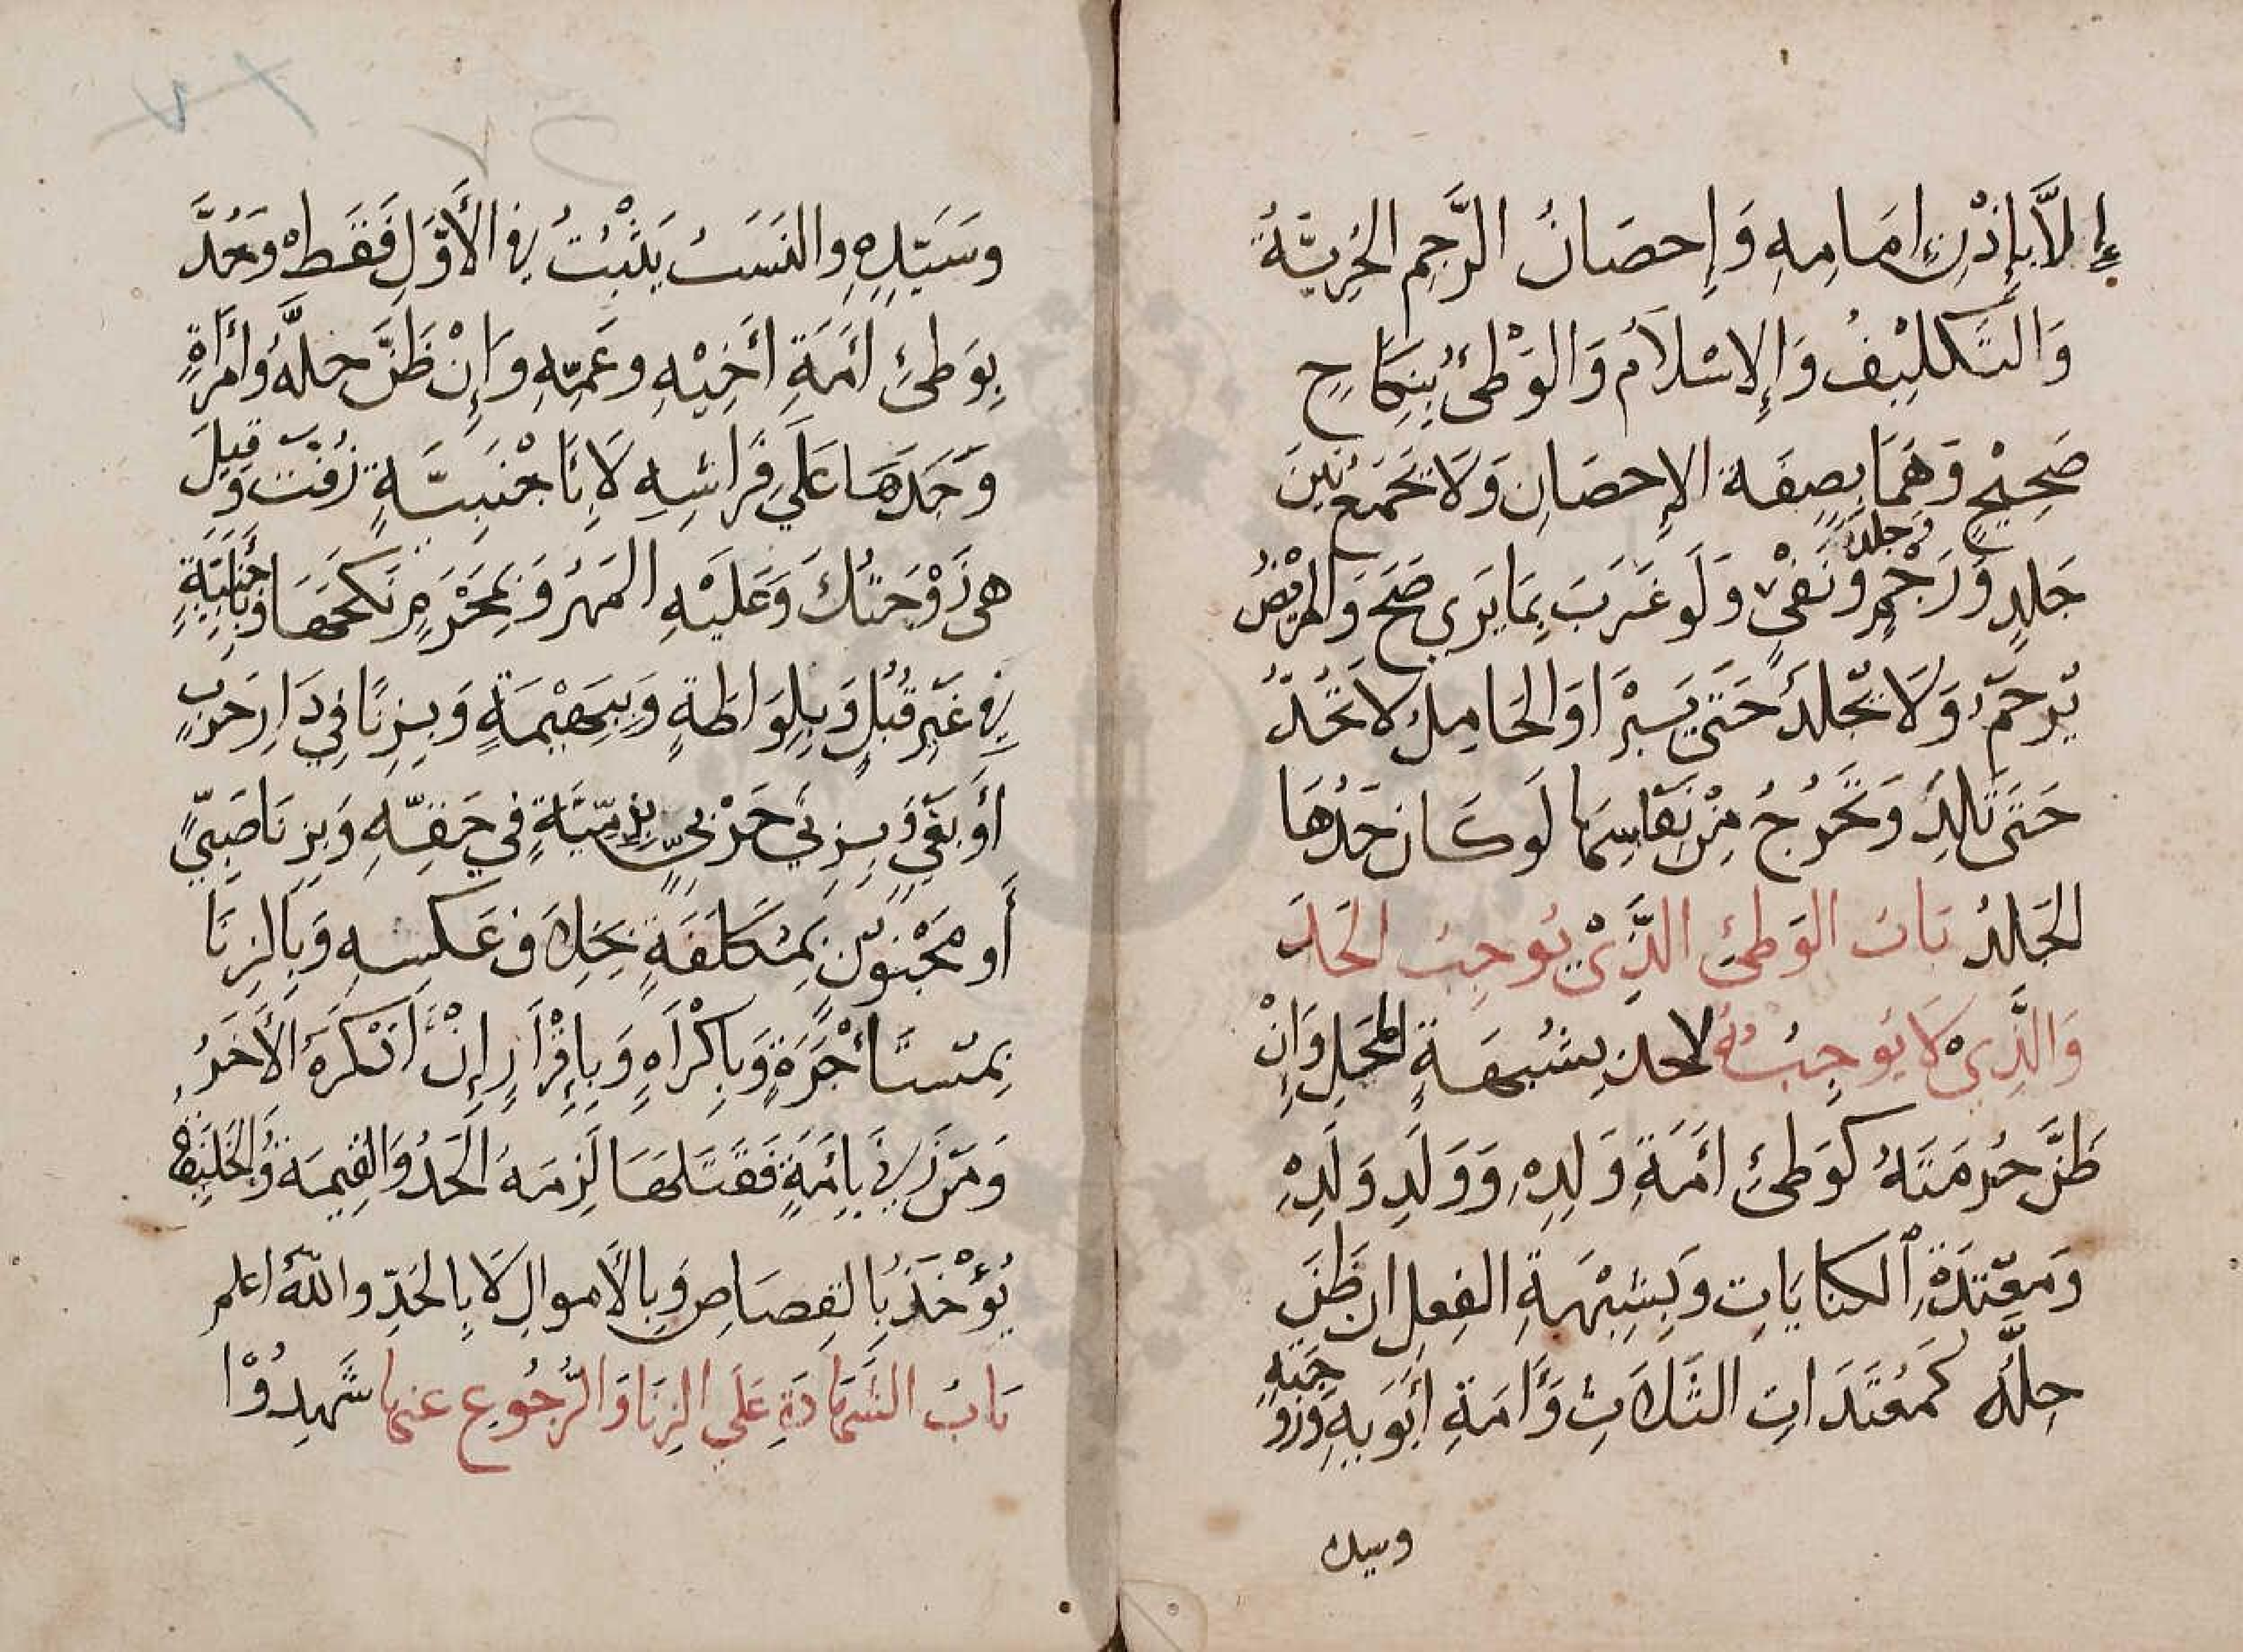 إِلاَّ بِإِذْنِ إِمَامِهِ وَإِحصَانُ الرَّجمِ الحُرِيَّةُ
وَالتَّكلِيْفُ وَالإِسْلاَمُ وَالوَطْئُ بِنِكَاحٍ
صَحِيْحٍ وَهُمَا بِصِفَة الإِحصَانِ وَلاَ يُجمَعُ بَيْنَ
جَلدٍ وَرَجْمٍ وَجلد وَنَفْيٍ وَلَو غَرَبَ بِمَا يَرَي صَحَ وَالمَرِيْضُ
يُرجَمُ وَلاَ يُجْلدُ حَتَى يَبْرَا وَالحَامِلُ لاَ تُحَدُّ
حَتَى تَلِدَ وَتَخْرُجُ مِنْ نِفَاسِهَا لَو كَانَ حَدُهَا
الجَلدُ بَابُ الوَطئِ الَّذِيْ يُوجِبُ الحَدَ
وَالَّذِيْ لاَ يُوجِبُهُ لاحد بِشُبهَةِ المحَلِ وَإِنْ
ظَنَّ حُرمَتَهُ كَوَطئِ أَمَةِ وَلَدِهِ وَوَلَدِ وَلَدِهِ
وَمعْتَدَةِ الكنَايَاتِ وَبِشُبْهَةِ الفِعلِ ان ظَنَّ
حِلَّه كَمُعْتَدَاتِ الثَلاَثِ وَأَمَةِ أَبَوَيهِ وَزَوجَتِهِ
وسيده
وَسَيّدِهِ وَالنَسَبُ يَثْبُتُ فِي الأَوَّلِ فَقَطْ وَحُدَّ
بِوَطئِ أَمَةِ أَخِيْهِ وَعَمِّهِ وَإِنْ ظَنَّ حلَّهُ وَامْرَأَةٍ
وَجَدَهَا عَلَي فِرَاشِهِ لاَ بِأَجْنَبِيَّةٍ زُفَّتْ وَقِيلَ
هِىَ زَوْجَتُكَ وَعَلَيْهِ المَهرُ وَبِمَحْرَمٍ نَكَحَهَا وَبِأَجْنَبِيَّةٍ
فِي غَيرِ قُبُلٍ وَبِلِوَاطَةٍ وَبِبَهِيْمَةٍ وَبِزِنًا فِي دَارِ حَربٍ
أَو بَغْيٍ وَبِزِنَي حَرْبِيٍّ بِذِمّيَّةٍ فِي حَقِّهِ وَبِزِنَا صَبِيٍّ
أَو مَجْنُونٍ بِمُكَلَّفَةٍ بِخِلاَفِ عَكسِهِ وَبِالزِنَا
بِمُسْتَأْجَرَةٍ وَبِاكْرَاهٍ وَبِإِقْرَارٍ إِنْ أَنْكَرَهُ الأَخَرُ
وَمَنْ زَنَي بِأَمَةٍ فَقَتَلَهَا لَزِمَهُ الحَدُ وَالقِيمَة وَالخَلِيْفَةُ
يُؤْخَذُ بِالقِصَاصِ وَبِالأَموالِ لاَ بِالحَدِّ واللهُ اعلم
بَابُ الشَّهَادَةِ عَلَي الزِنَا وَالرُّجُوعِ عنها شَهِدُوْا